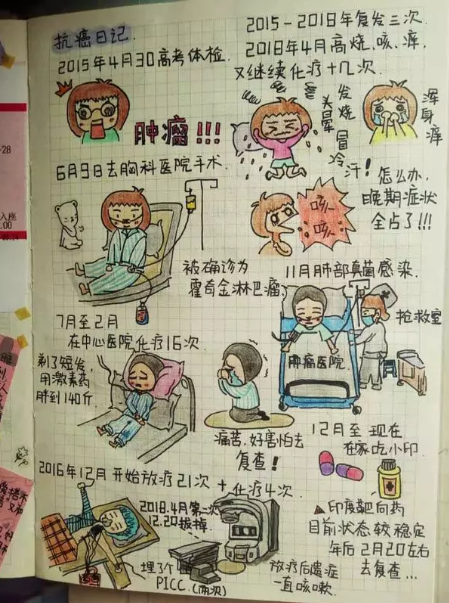 抗癌日记.
2015年4月30高考体检.
肿瘤!!!
6月9日去胸科医院手术.
被确诊为
霍奇金淋巴瘤
7月至2月
在中心医院化疗16次
剃了短发,
用激素药
胖到140斤
痛苦.好害怕去
复查!
2016年12月 开始放疗21次 + 化疗4次
2018.4月第二次
12.20拔掉.
埋了个
PICC (两次)
放疗后遗症
一直咳嗽.
2015-2018年复发三次
2018年4月高烧.咳.痒,
又继续化疗十几次.
发烧
头晕
冒冷汗!
浑身痒
咳
咳
怎么办,
晚期症状
全占了!!!
11月肺部真菌感染.
抢救室
肿瘤医院.
12月至 现在
在家吃小印
印度靶向药
目前状态较稳定
年后2月20左右
去复查...
-28
入座
.00